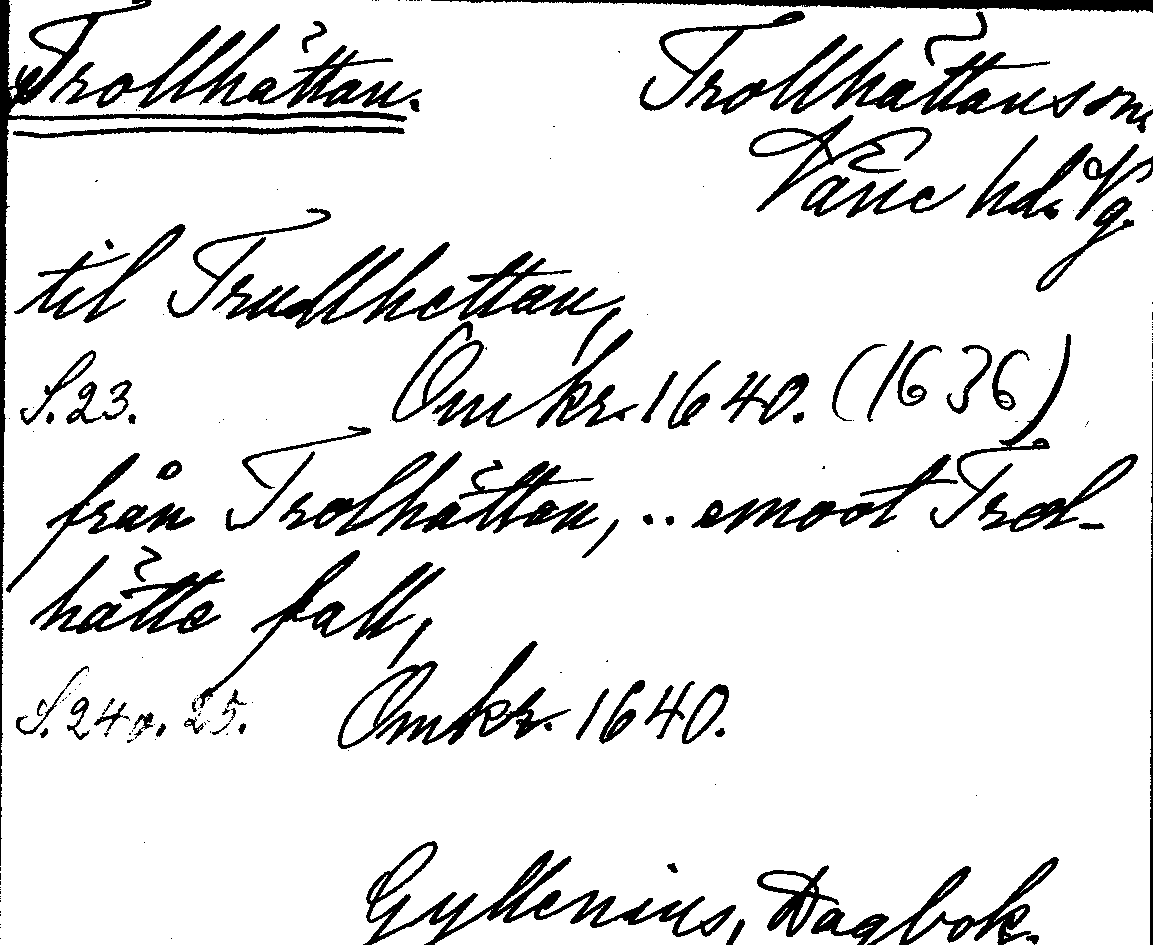 Trollhättan. Trollhättans sn,
Väne hd. Vg.
til Trudlhettan,
S. 23. Omkr. 1640. (1636).
från Trolhättan, .. emoot Trol-
hätte fall,
S. 24 o. 25. Omkr. 1640.
Gyllenius, Dagbok.